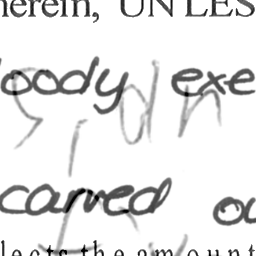 herein, UNLES
loody exe
carved ou
lects the amount